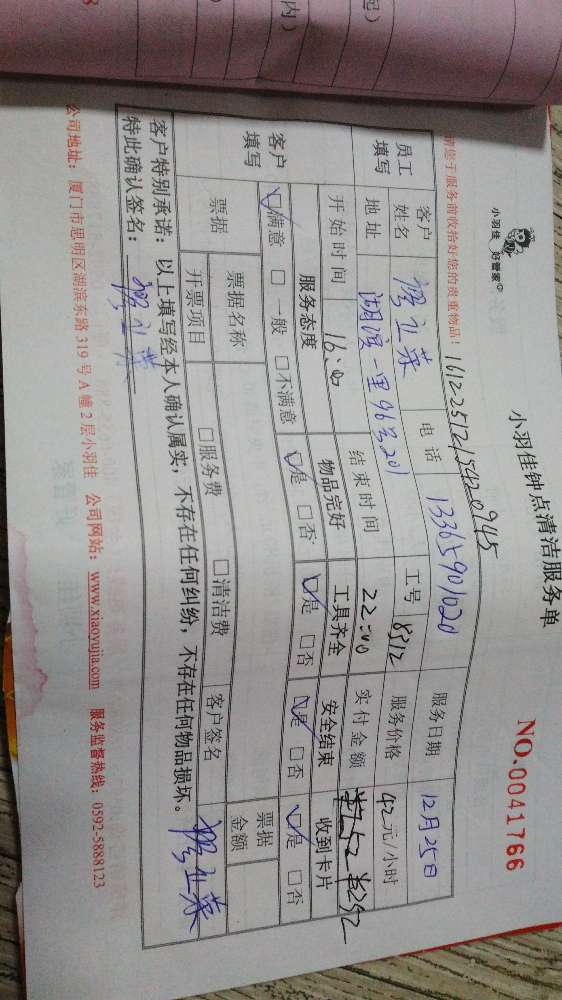 小羽佳
好管家
小羽佳钟点清洁服务单
NO.0041766
请您于服务前收拾好您的贵重物品！
16122512154220945
员工填写
客户姓名
电话 13365901020
服务日期 12月25日
地址 湖滨一里96号201
工号 8512
服务价格 42元/小时
开始时间 16:00
结束时间 22:00
实付金额 252
客户填写
服务态度 物品完好 工具齐全 安全结束 收到卡片
☑满意 □一般 □不满意 ☑是 □否 ☑是 □否 ☑是 □否 ☑是 □否
票据 票据名称 票据金额
开票项目 □服务费 □清洁费 客户签名
客户特别承诺：以上填写经本人确认属实，不存在任何纠纷，不存在任何物品损坏。
特此确认签名：
公司地址：厦门市思明区湖滨东路 319 号 A 幢 2 层小羽佳 公司网站：www.xiaoyujia.com 服务监督热线：0592-5888123